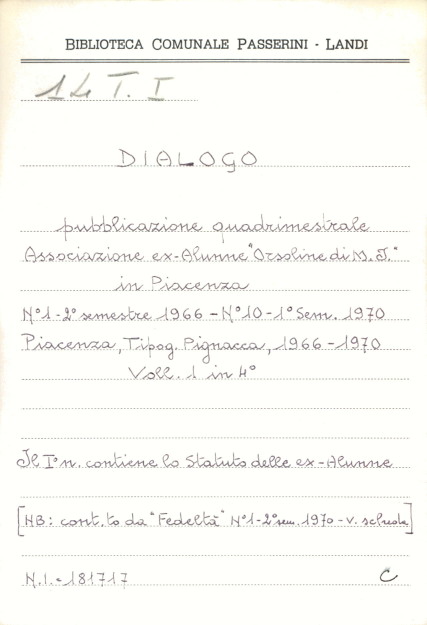 BIBLIOTECA COMUNALE PASSERINI - LANDI
14 T. I
DIALOGO
pubblicazione quadrimestrale
Associazione ex-Alunne "Orsoline di M. I."
in Piacenza
N°1-2° semestre 1966 - N°10-1° Sem. 1970
Piacenza, Tipog. Pignacca, 1966-1970
Voll. 1 in 4°
Il I° n. contiene lo Statuto delle ex-Alunne
[NB: cont.to da "Fedeltà" N°1-2° sem. 1970-v. scheda]
N.I.-181717
C